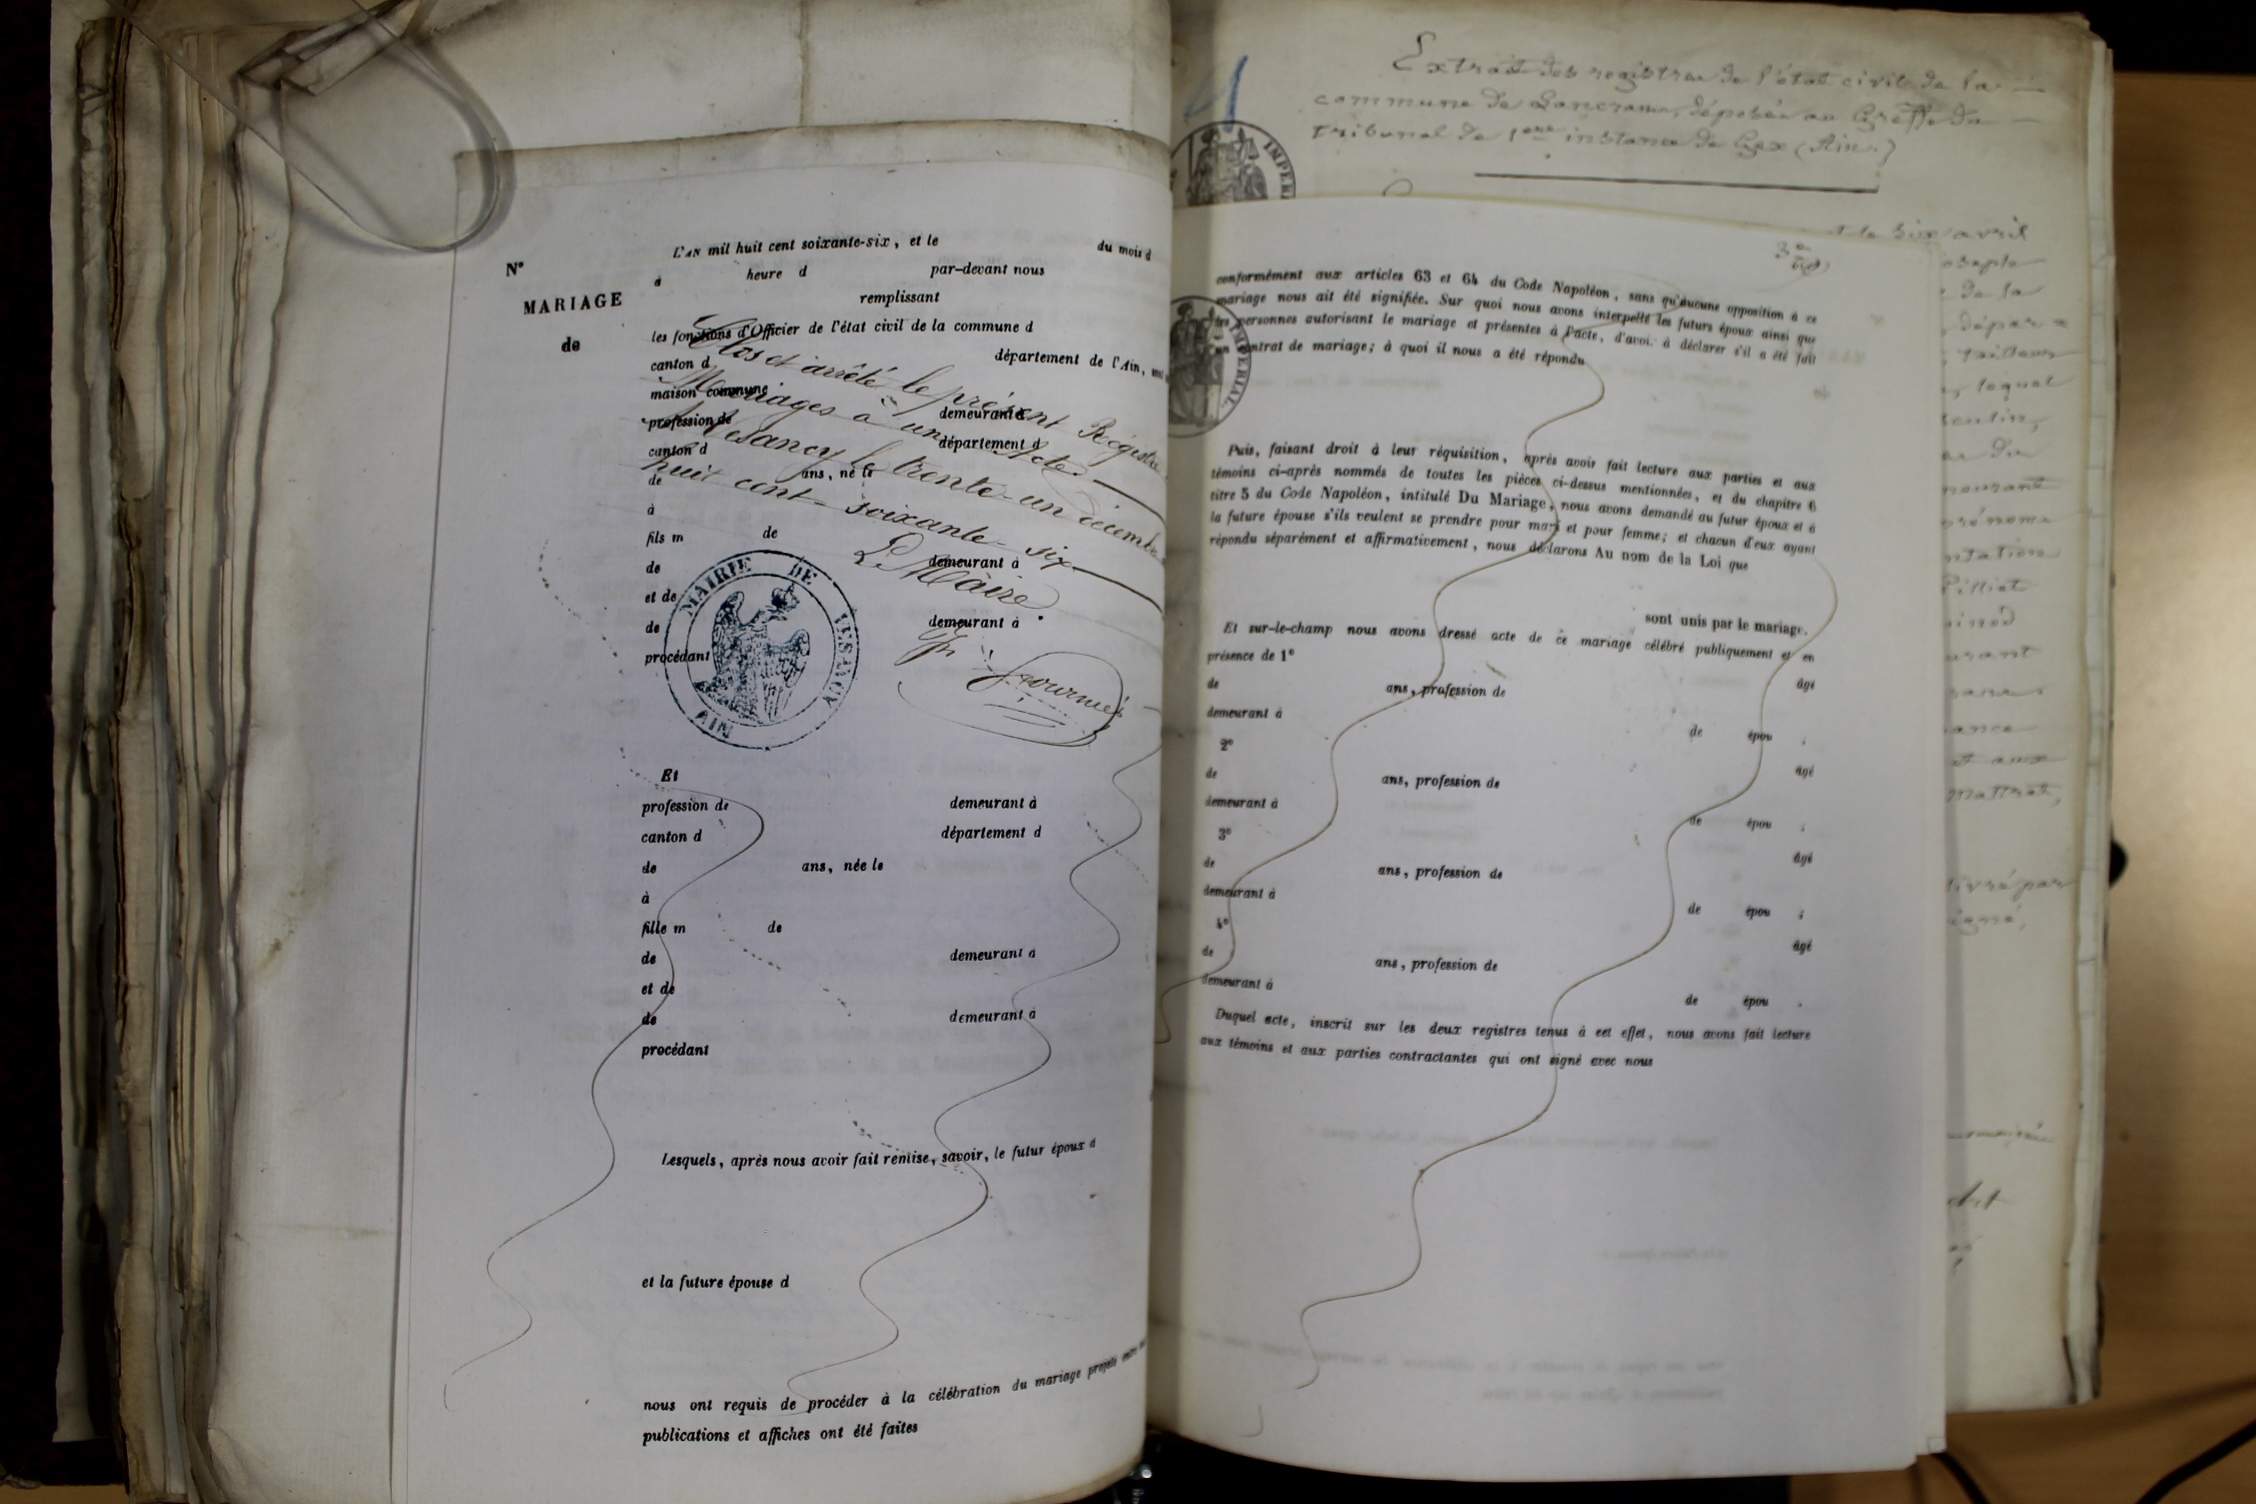 N°
MARIAGE
de
L'AN mil huit cent soixante-six, et le du mois d
à heure d par-devant nous
remplissant
les fonctions d'Officier de l'état civil de la commune d
canton d département de l'Ain,
maison commune
profession de demeurant à
canton d département d
de ans, né le
à
fils m de
de demeurant à
et de
de demeurant à
procédant
Clos et arrêté le présent Régistre
Mariages à un Acte
Vesancy le trente-un décembre
huit cent soixante-six
Le Maire
MAIRIE DE VESANCY
AIN
Fournier
Et
profession de demeurant à
canton d département d
de ans, née le
à
fille m de
de demeurant à
et de
de demeurant à
procédant
Lesquels, après nous avoir fait remise, savoir, le futur époux d
et la future épouse d
nous ont requis de procéder à la célébration du mariage projeté entre
publications et affiches ont été faites
Extrait des registres de l'état civil de la
commune de Lancrans, déposés au Greffe du
tribunal de 1ère instance de Gex (Ain.)
IMPERIAL
le six avril
de la
dépar=
tailleur
lequel
conformément aux articles 63 et 64 du Code Napoléon, sans qu'aucune opposition à ce
mariage nous ait été signifiée. Sur quoi nous avons interpellé les futurs époux ainsi que
les personnes autorisant le mariage et présentes à l'acte, d'avoir à déclarer s'il a été fait
un contrat de mariage; à quoi il nous a été répondu
IMPERIAL
Puis, faisant droit à leur réquisition, après avoir fait lecture aux parties et aux
témoins ci-après nommés de toutes les pièces ci-dessus mentionnées, et du chapitre 6
titre 5 du Code Napoléon, intitulé Du Mariage, nous avons demandé au futur époux et à
la future épouse s'ils veulent se prendre pour mari et pour femme; et chacun d'eux ayant
répondu séparément et affirmativement, nous déclarons Au nom de la Loi que
sont unis par le mariage.
Et sur-le-champ nous avons dressé acte de ce mariage célébré publiquement et en
présence de 1° âgé
de ans, profession de
demeurant à de épou ;
2° âgé
de ans, profession de
demeurant à de épou ;
3° âgé
de ans, profession de
demeurant à de épou ;
4° âgé
de ans, profession de
demeurant à de épou .
Duquel acte, inscrit sur les deux registres tenus à cet effet, nous avons fait lecture
aux témoins et aux parties contractantes qui ont signé avec nous